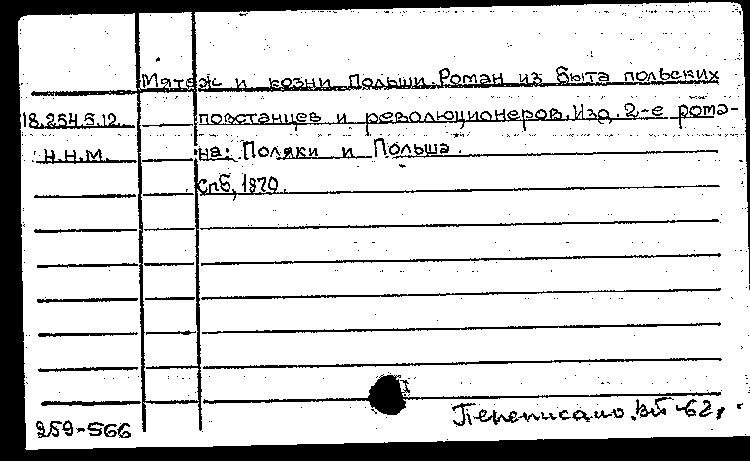 Мятеж и козни Польши. Роман из быта польских
18.254.5.12. повстанцев и революционеров. Изд. 2-е рома-
Н.Н.М. на: Поляки и Польша.
Спб, 1870.
Переписано. 62г.
259-566